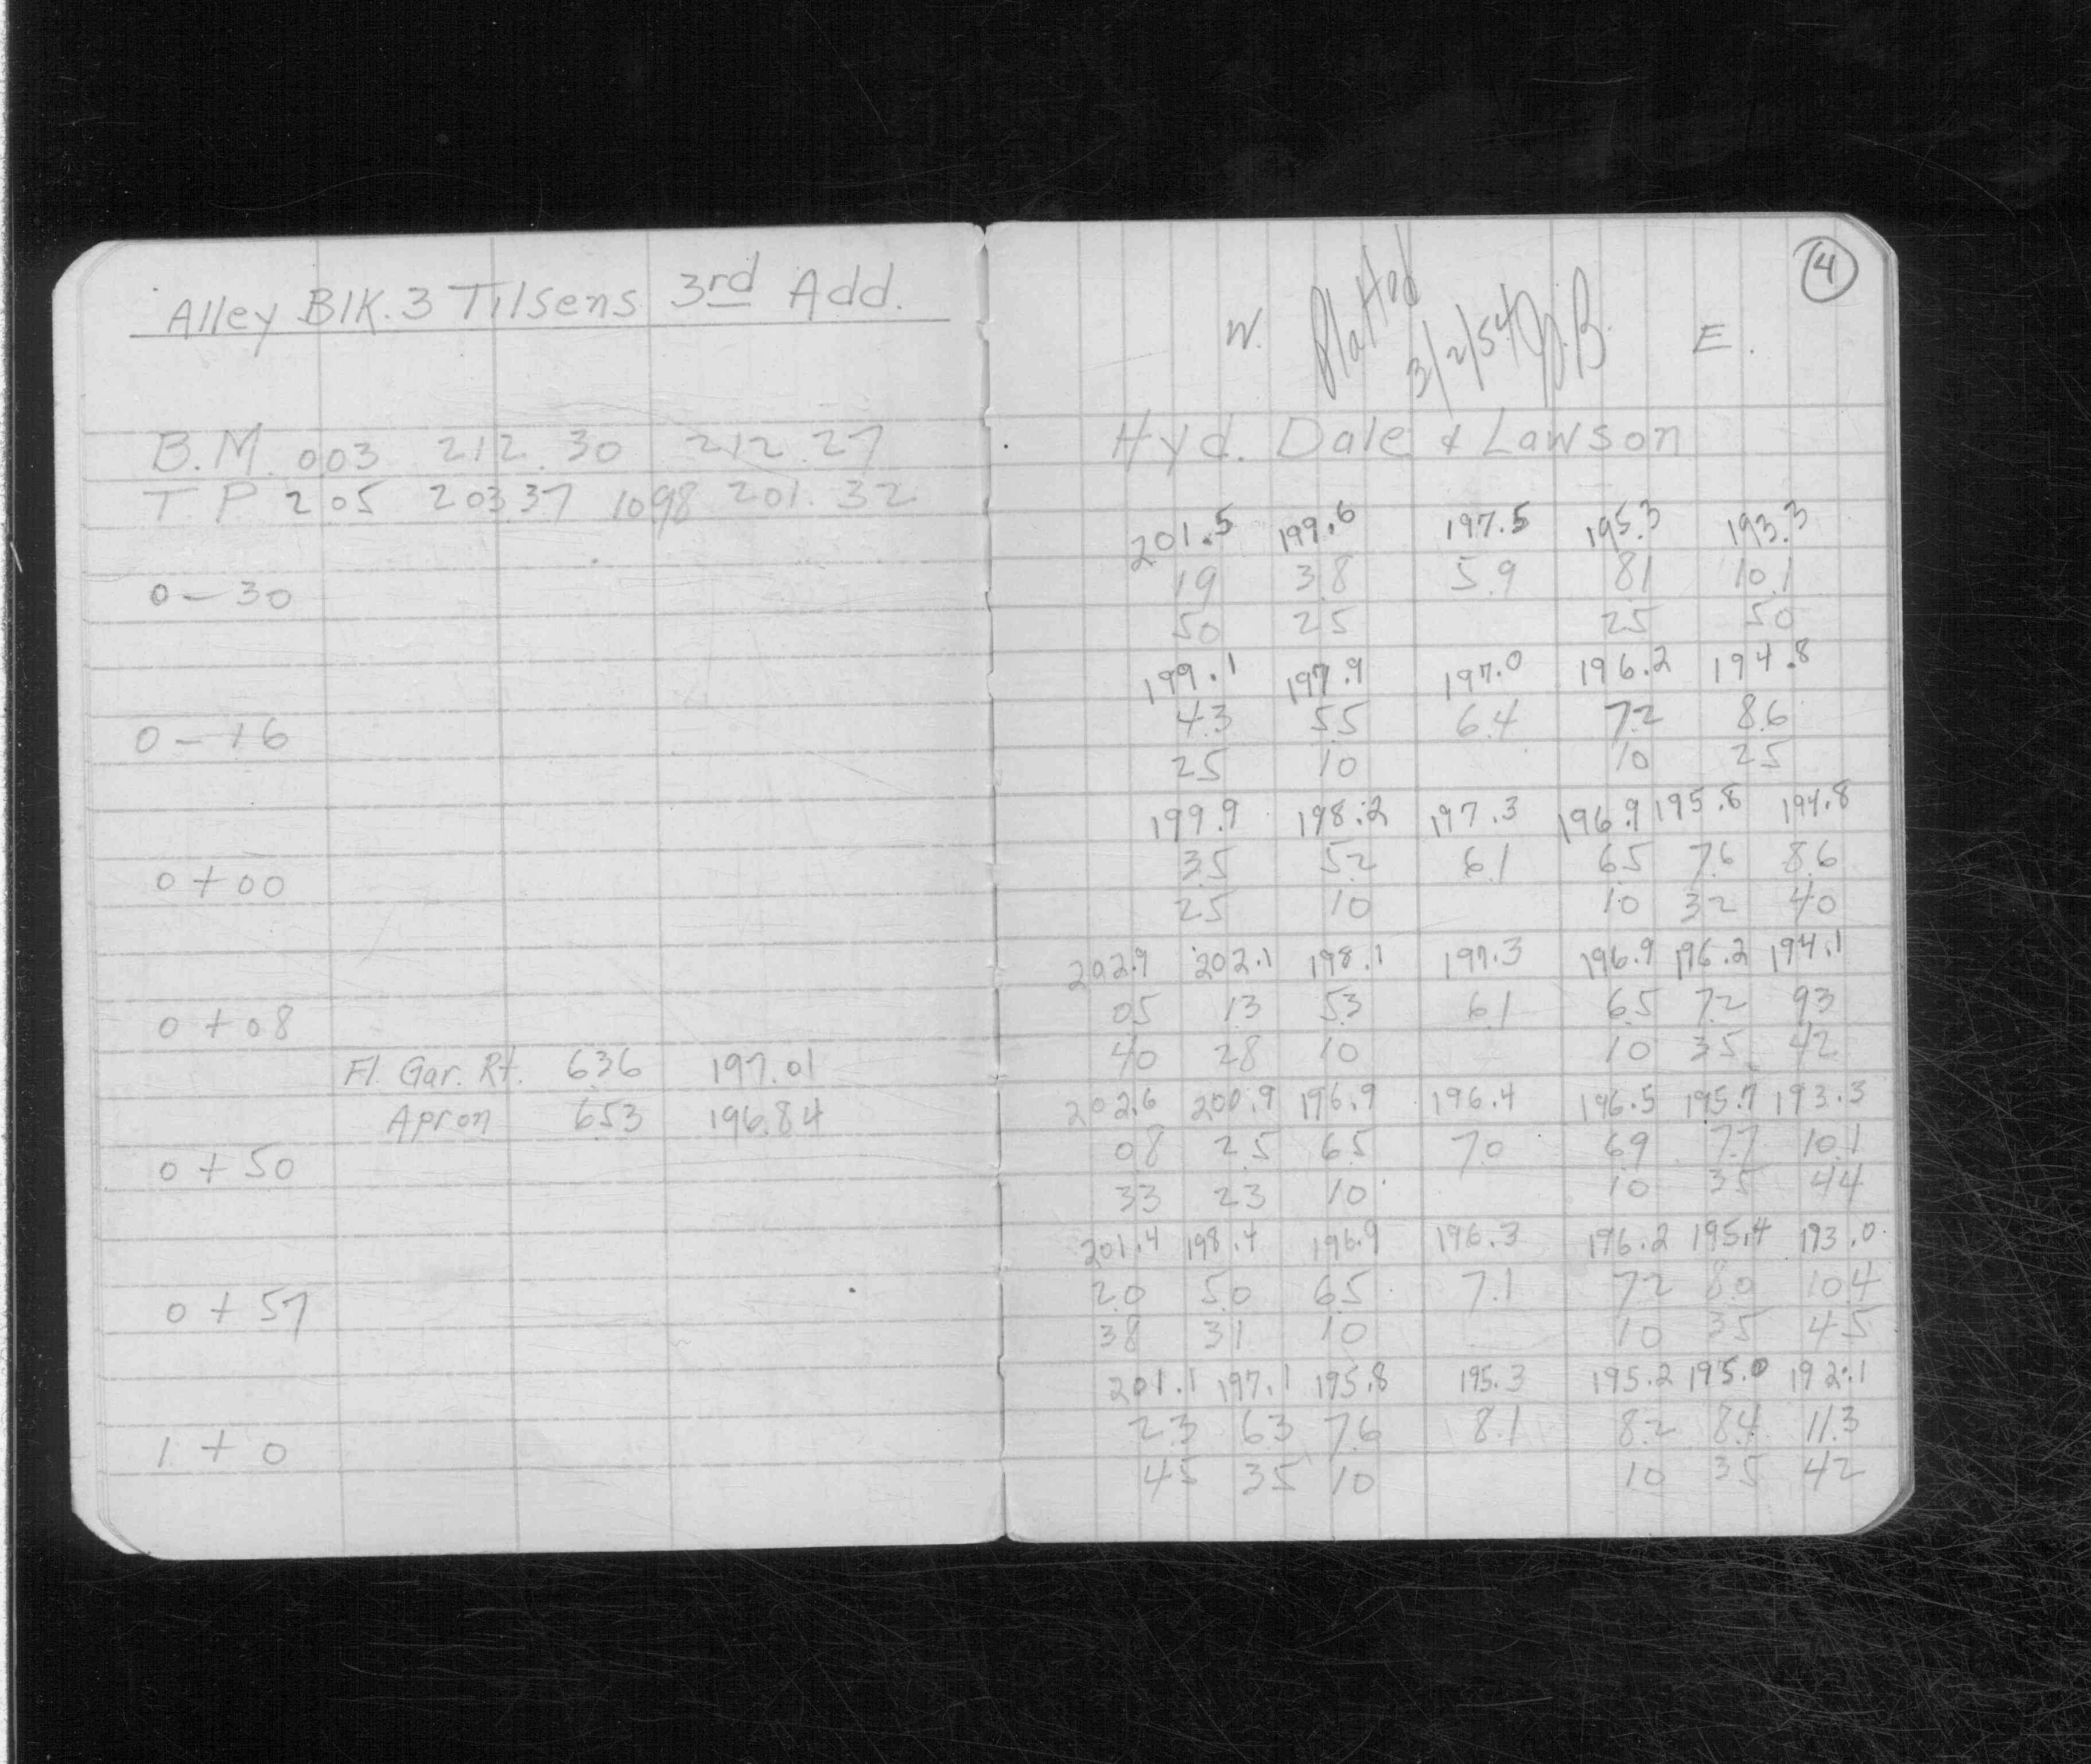 Alley Blk. 3 Tilsens 3rd Add.
B.M. 003 212.30 212.27
T.P 205 203.37 1098 201.32
0-30
0-16
0+00
0+08
Fl. Gar. Rt. 636 197.01
Apron 653 196.84
0+50
0+57
1+0
4
W. Platted E.
3/2/54
Hyd. Dale & Lawson
201.5 199.6 197.5 195.3 193.3
19 38 5.9 81 10.1
50 25 25 50
199.1 197.9 197.0 196.2 194.8
43 55 64 72 86
25 10 10 25
199.9 198.2 197.3 196.9 195.8 194.8
35 52 61 65 76 86
25 10 10 32 40
202.9 202.1 198.1 197.3 196.9 196.2 194.1
05 13 53 61 65 72 93
40 28 10 10 35 42
202.6 200.9 196.9 196.4 196.5 195.7 193.3
08 25 65 70 69 77 10.1
33 23 10 10 35 44
201.4 198.4 196.9 196.3 196.2 195.4 193.0
20 50 65 7.1 72 80 104
38 31 10 10 35 45
201.1 197.1 195.8 195.3 195.2 195.0 192.1
23 63 76 8.1 82 84 11.3
45 35 10 10 35 42